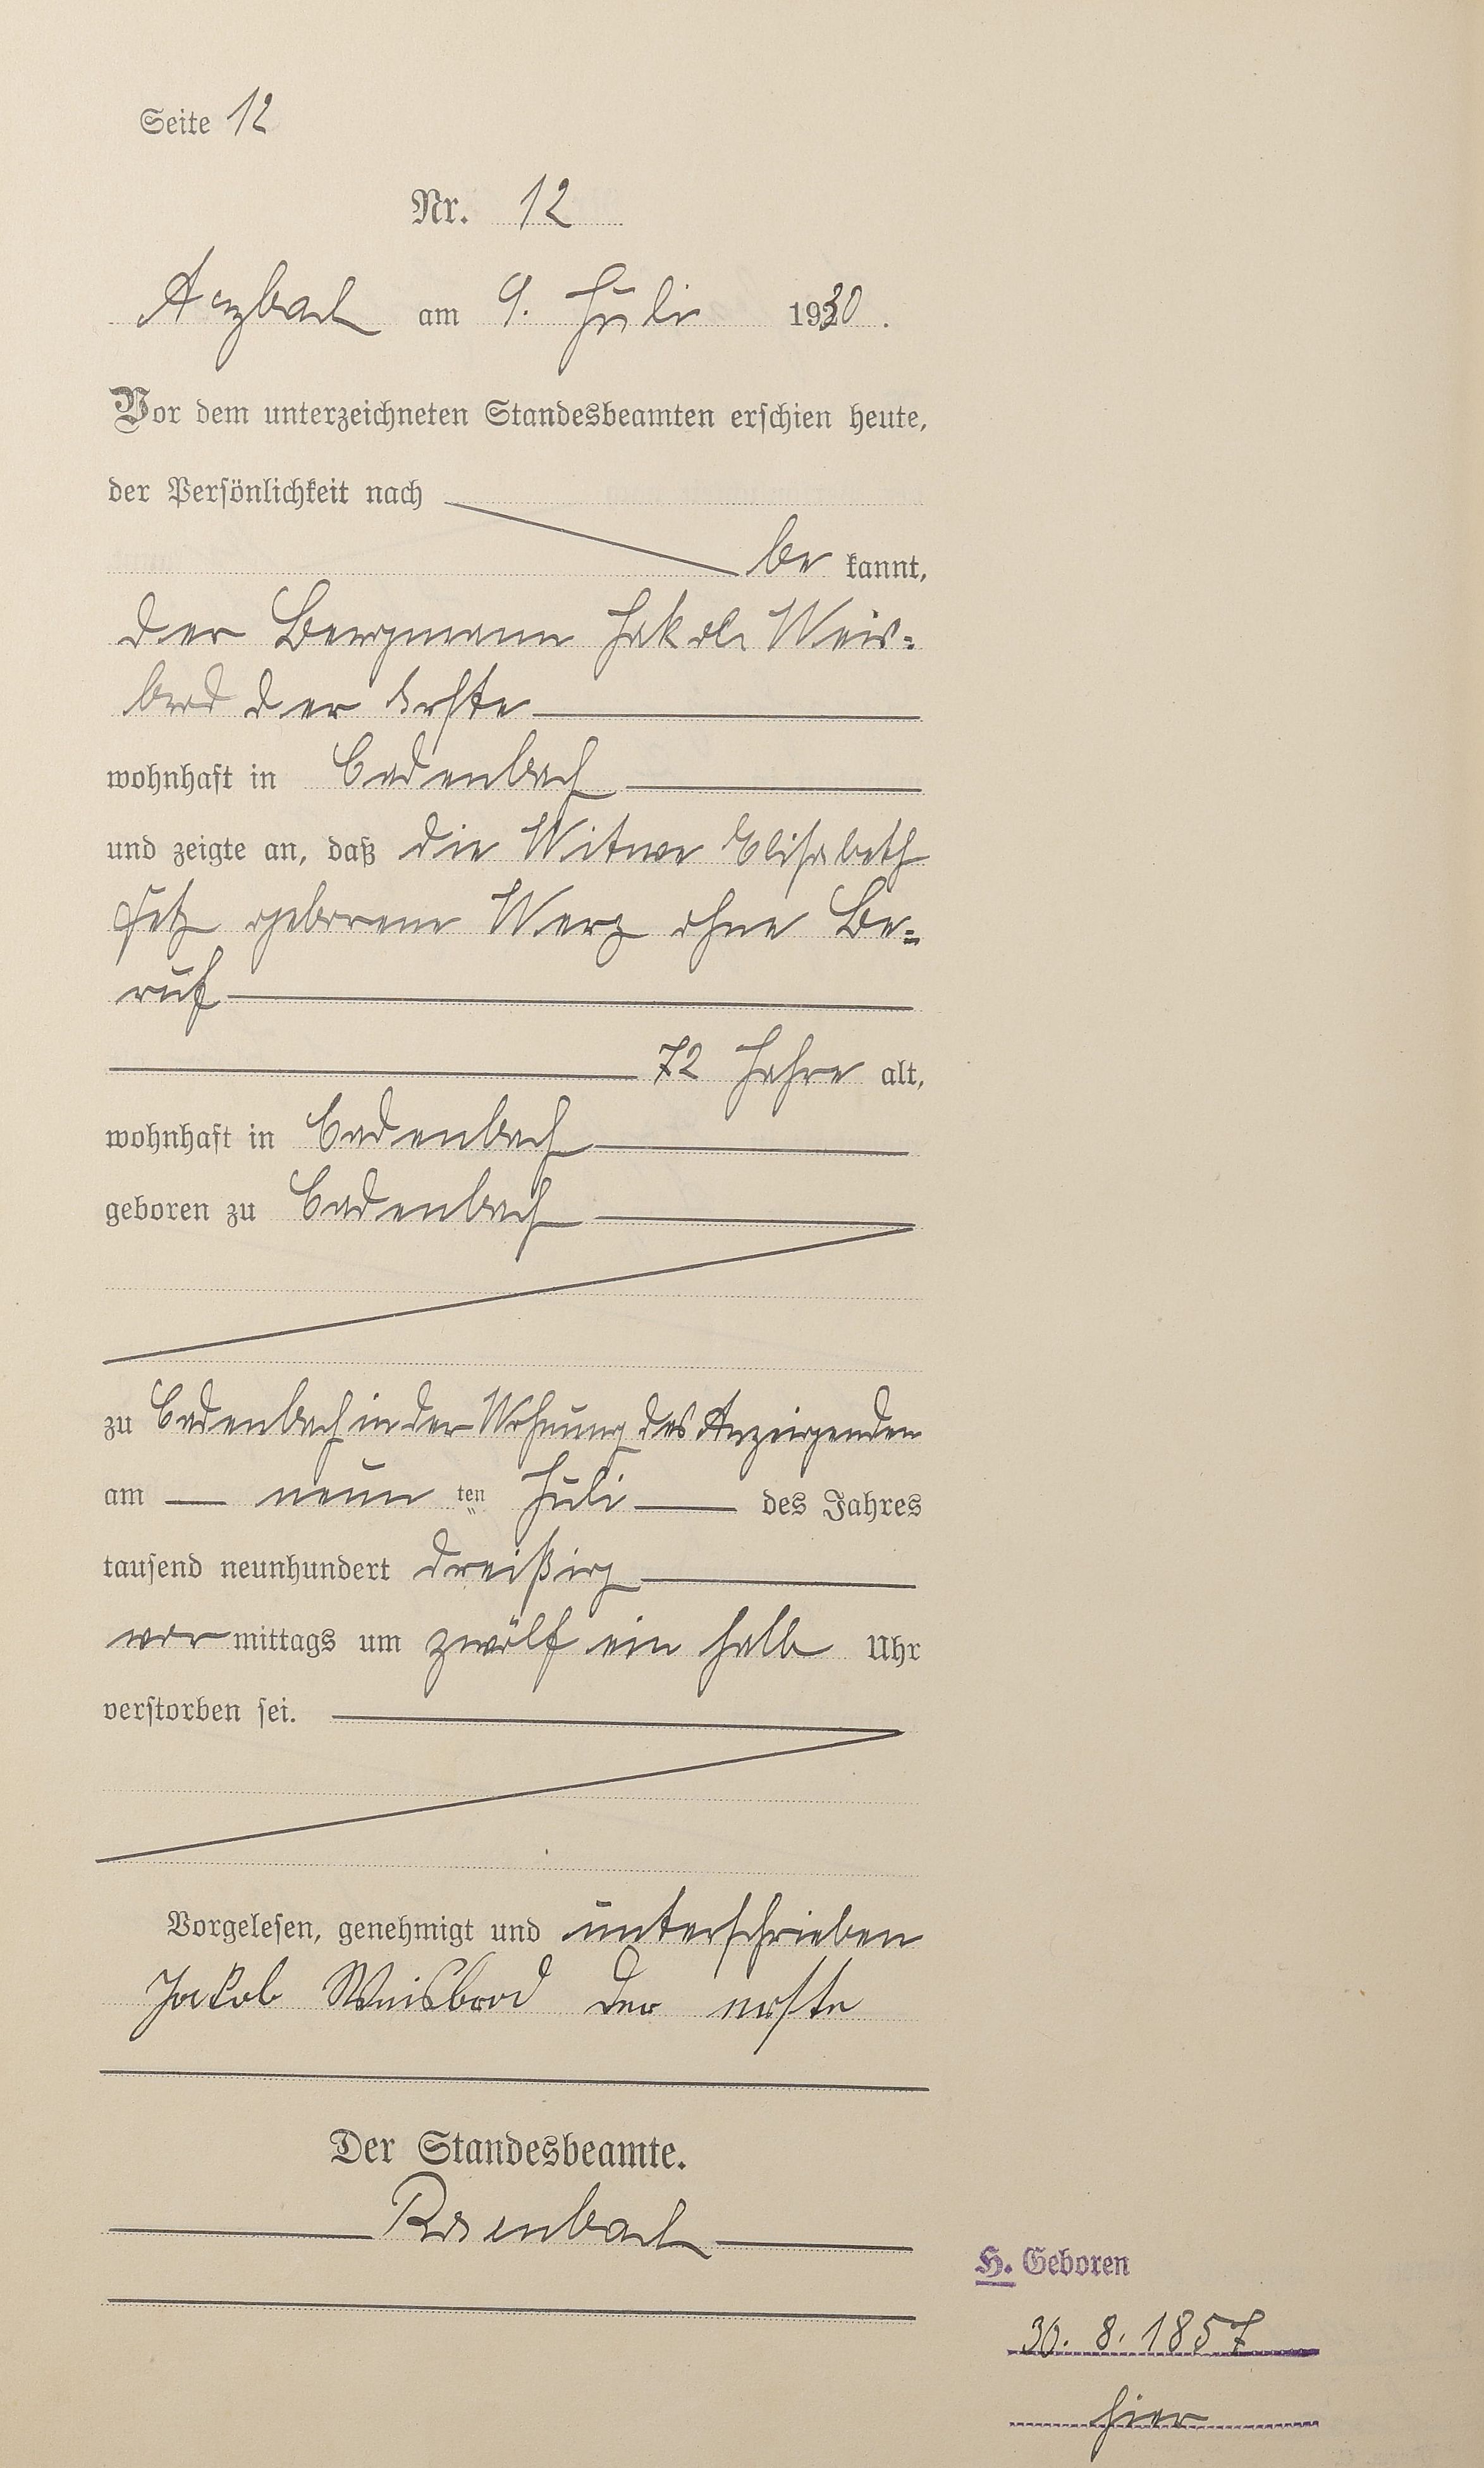 Seite 12
Nr. 12
Arzbach am 9. Juli 1930.
Vor dem unterzeichneten Standesbeamten erschien heute,
der Persönlichkeit nach
be kannt,
der Bergmann Jakob Weis=
brod der Erste
wohnhaft in Cadenbach
und zeigte an, daß die Witwe Elisabeth
geborene Werz ohne Be=
ruf
72 Jahre alt,
wohnhaft in Cadenbach
geboren zu Cadenbach
zu Cadenbach in der Wohnung des Anzeigenden
am neun ten Juli des Jahres
tausend neunhundert dreißig
vor mittags um zwölf ein halb Uhr
verstorben sei.
Vorgelesen, genehmigt und unterschrieben
Jakob Weisbrod der erste
Der Standesbeamte.
Rosenbach
H. Geboren
30. 8. 1857
hier